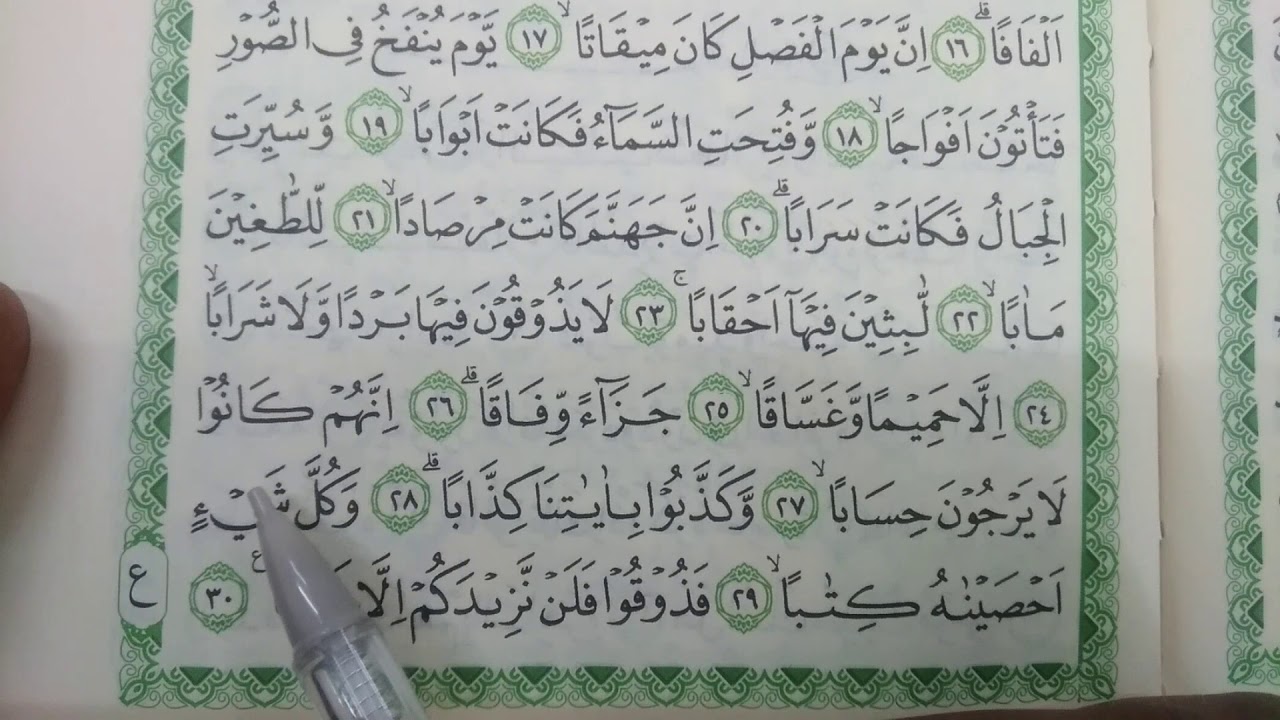 اَلْفَافًا ۗ ١٦ اِنَّ يَوْمَ الْفَصْلِ كَانَ مِيْقَاتًا ۙ ١٧ يَّوْمَ يُنْفَخُ فِى الصُّوْرِ
فَتَأْتُوْنَ اَفْوَاجًا ۙ ١٨ وَّفُتِحَتِ السَّمَاۤءُ فَكَانَتْ اَبْوَابًا ۙ ١٩ وَّسُيِّرَتِ
الْجِبَالُ فَكَانَتْ سَرَابًا ۗ ٢٠ اِنَّ جَهَنَّمَ كَانَتْ مِرْصَادًا ۙ ٢١ لِّلطّٰغِيْنَ
مَاٰبًا ۙ ٢٢ لّٰبِثِيْنَ فِيْهَآ اَحْقَابًا ۚ ٢٣ لَا يَذُوْقُوْنَ فِيْهَا بَرْدًا وَّلَا شَرَابًا ۙ
٢٤ اِلَّا حَمِيْمًا وَّغَسَّاقًا ۙ ٢٥ جَزَاۤءً وِّفَاقًا ۗ ٢٦ اِنَّهُمْ كَانُوْا
لَا يَرْجُوْنَ حِسَابًا ۙ ٢٧ وَّكَذَّبُوْا بِاٰيٰتِنَا كِذَّابًا ۗ ٢٨ وَكُلَّ شَيْءٍ
اَحْصَيْنٰهُ كِتٰبًا ۙ ٢٩ فَذُوْقُوْا فَلَنْ نَّزِيْدَكُمْ اِلَّا ٣٠
ع